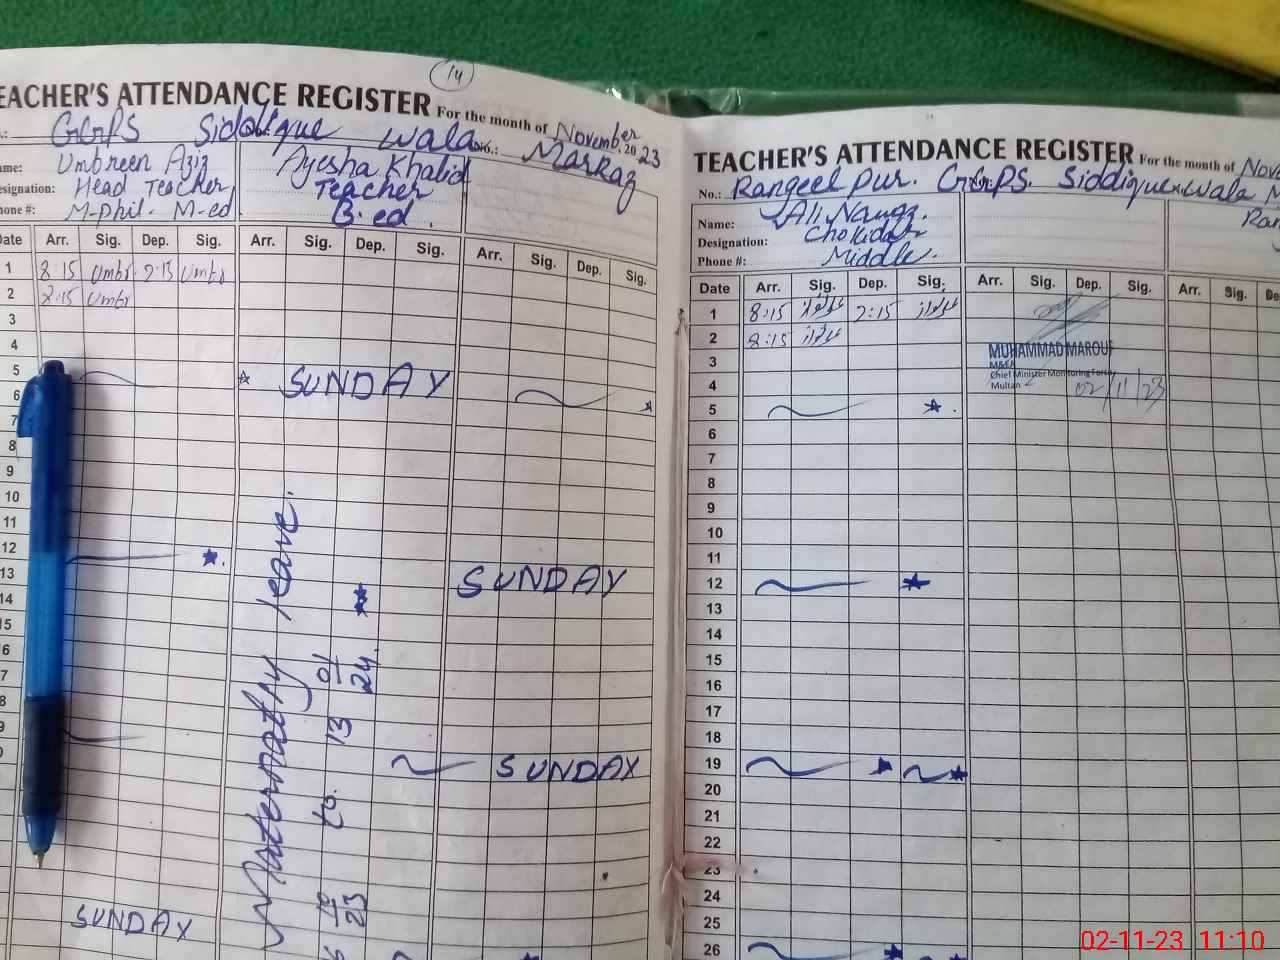 14
EACHER'S ATTENDANCE REGISTER For the month of November 2023
GGPS Siddique wala Markaz
ame: Umbreen Aziz
esignation: Head Teacher
hone #: M-Phil. M-ed
Ayesha Khalid
Teacher
B.ed.
Date Arr. Sig. Dep. Sig. Arr. Sig. Dep. Sig. Arr. Sig. Dep. Sig.
1 8:15 Umbr 2:15 Umbr
2 8:15 Umbr
3
4
5 SUNDAY
6
7
8
9
10
11
12 SUNDAY
13
14
15
6
7
8
9 SUNDAY
0
SUNDAY
Maternathy leave.
to 13 01 24.
23
TEACHER'S ATTENDANCE REGISTER For the month of Nove
No.: Rangeel pur. GGPS. Siddique wala M
Ran
Name: Ali Nawaz.
Designation: Chokidar
Phone #: Middle.
Date Arr. Sig. Dep. Sig. Arr. Sig. Dep. Sig. Arr. Sig. De
1 8:15 2:15
2 8:15
3
4
5
6
7
8
9
10
11
12
13
14
15
16
17
18
19
20
21
22
23
24
25
26
MUHAMMAD MAROUF
M&EA
Chief Minister Monitoring Force
Multan
02/11/23
02-11-23 11:10